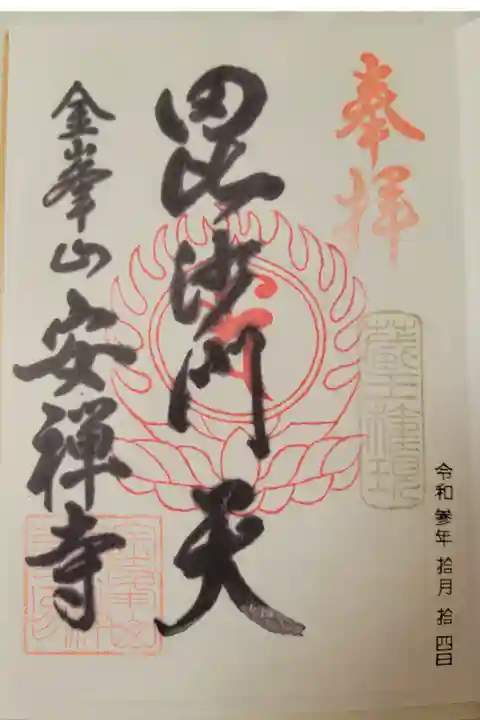 奉拝
蔵王権現
令和 参年 拾月 拾四日
毘沙門天
金峯山 安禅寺